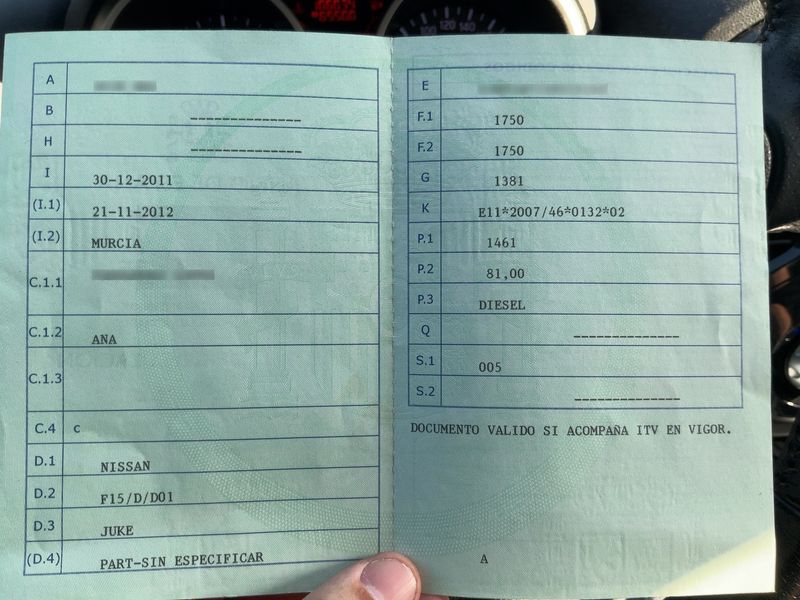 100 120 140
A
B --------------
H --------------
I 30-12-2011
(I.1) 21-11-2012
(I.2) MURCIA
C.1.1
C.1.2 ANA
C.1.3
C.4 c
D.1 NISSAN
D.2 F15/D/D01
D.3 JUKE
(D.4) PART-SIN ESPECIFICAR
E
F.1 1750
F.2 1750
G 1381
K E11*2007/46*0132*02
P.1 1461
P.2 81,00
P.3 DIESEL
Q --------------
S.1 005
S.2 --------------
DOCUMENTO VALIDO SI ACOMPAÑA ITV EN VIGOR.
A